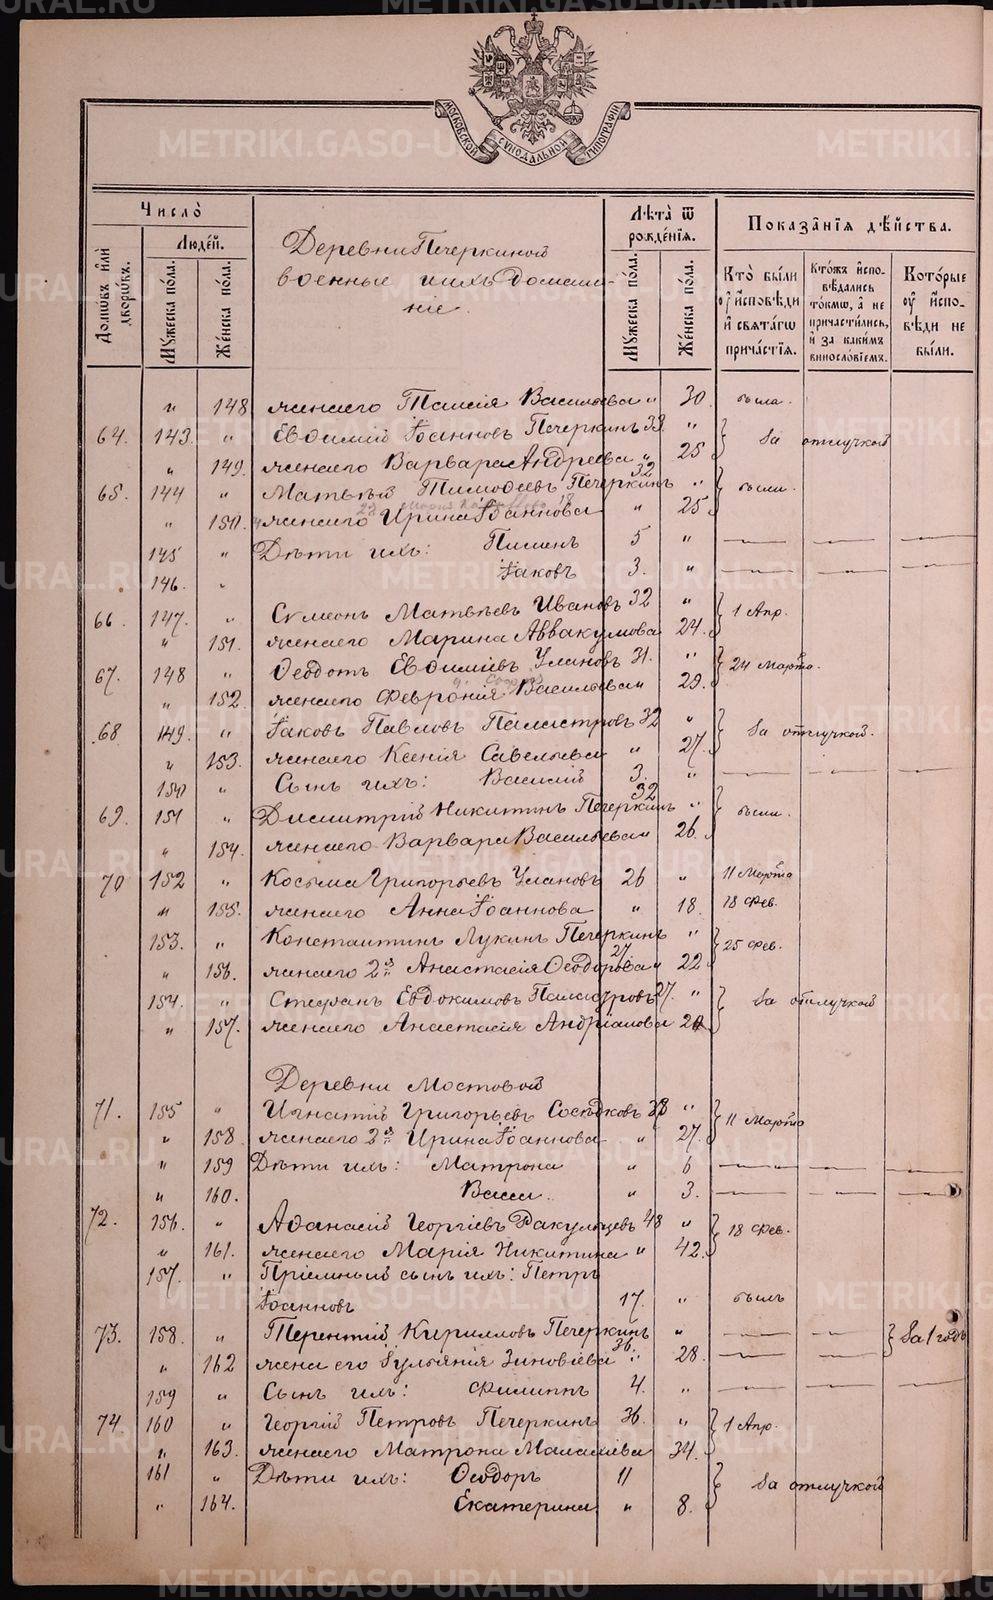 METRIKI.GASO-URAL.RU
МОСКОВСКОЙ СѴНОДАЛЬНОЙ ТИПОГРАФІИ
Число̀
Домѡвъ и҆лѝ дворѡвъ.
Люде́й.
Мꙋжеска по́ла.
Же́нска по́ла.
Деревни Печеркиной
военные и ихъ домаш-
ніе.
Лѣта̀ ѿ рожде́нїѧ.
Мꙋжеска по́ла.
Же́нска по́ла.
Показа̑нїѧ дѣ́йства.
Кто̀ бы́ли ᲂу҆ и҆́сповѣди и҆ свѧта́гѡ прича́стїѧ.
Кто́жъ и҆спо-вѣ́дались то́кмѡ, а҆ не причасти́лись, и҆ за каки́мъ винослѡ́вїемъ.
Кото́рые ᲂу҆ и҆́спо-вѣди не бы́ли.
" 148 жена его Таисія Васильева " 30. была.
64. 143. " Евѳимій Іоанновъ Печеркинъ 33 " За отлучкой
" 149. жена его Варвара Андреева " 25
65. 144 " Матвѣй Тимоѳеевъ Печеркинъ 32 " были.
" 150. жена его Ирина Іоаннова " 25.
145 " Дѣти ихъ: Пименъ 5 "
146. " Іаковъ 3. "
66. 147. " Сѵмеонъ Матвѣевъ Ивановъ 32 " 1 Апр.
" 151. жена его Марина Аввакумова 24.
67. 148 " Ѳеодотъ Евѳиміевъ Улановъ 31. " 24 Марта.
" 152. жена его Феврония Васильева " 29.
68. 149. " Іаковъ Павловъ Паластровъ 32 " За отлучкой.
" 153. жена его Ксенія Савельева " 27.
150 " Сынъ ихъ: Василій 3. "
69. 151 " Димитрій Никитинъ Печеркинъ 32 " были.
" 154. жена его Варвара Васильева " 26.
70 152 " Косьма Григорьевъ Улановъ 26 " 11 Марта
" 155. жена его Анна Іоаннова " 18. 18 Фев.
153. " Константинъ Лукинъ Печеркинъ 27 " 25 Фев.
" 156. жена его 2я Анастасія Ѳеодорова " 22
154. " Стефанъ Евдокимовъ 27. " За отлучкой
" 157. жена его Анастасія Андріанова 20
Деревни Мостовой
71. 155 " Игнатій Григорьевъ Сосѣдковъ 33 " 11 Марта
" 158. жена его 2я Ирина Іоаннова " 27.
" 159 Дѣти ихъ: Матрона " 6
" 160. Васса. " 3.
72. 156. " Аѳанасій Георгіевъ Ракульцевъ 48 " 18 Фев.
" 161. жена его Марія Никитина " 42.
157. " Пріемный сынъ ихъ: Петръ
Іоанновъ 17. " былъ
73. 158. " Терентій Кирилловъ Печеркинъ 36. " За 1 годъ
" 162 жена его Іуліанія Зиновіева " 28.
159 " Сынъ ихъ: Филиппъ 4. "
74. 160 " Георгій Петровъ Печеркинъ 36. " 1 Апр.
" 163. жена его Матрона Малахіева 34.
161 " Дѣти ихъ: Ѳеодоръ 11 За отлучкой
" 164. Екатерина " 8.